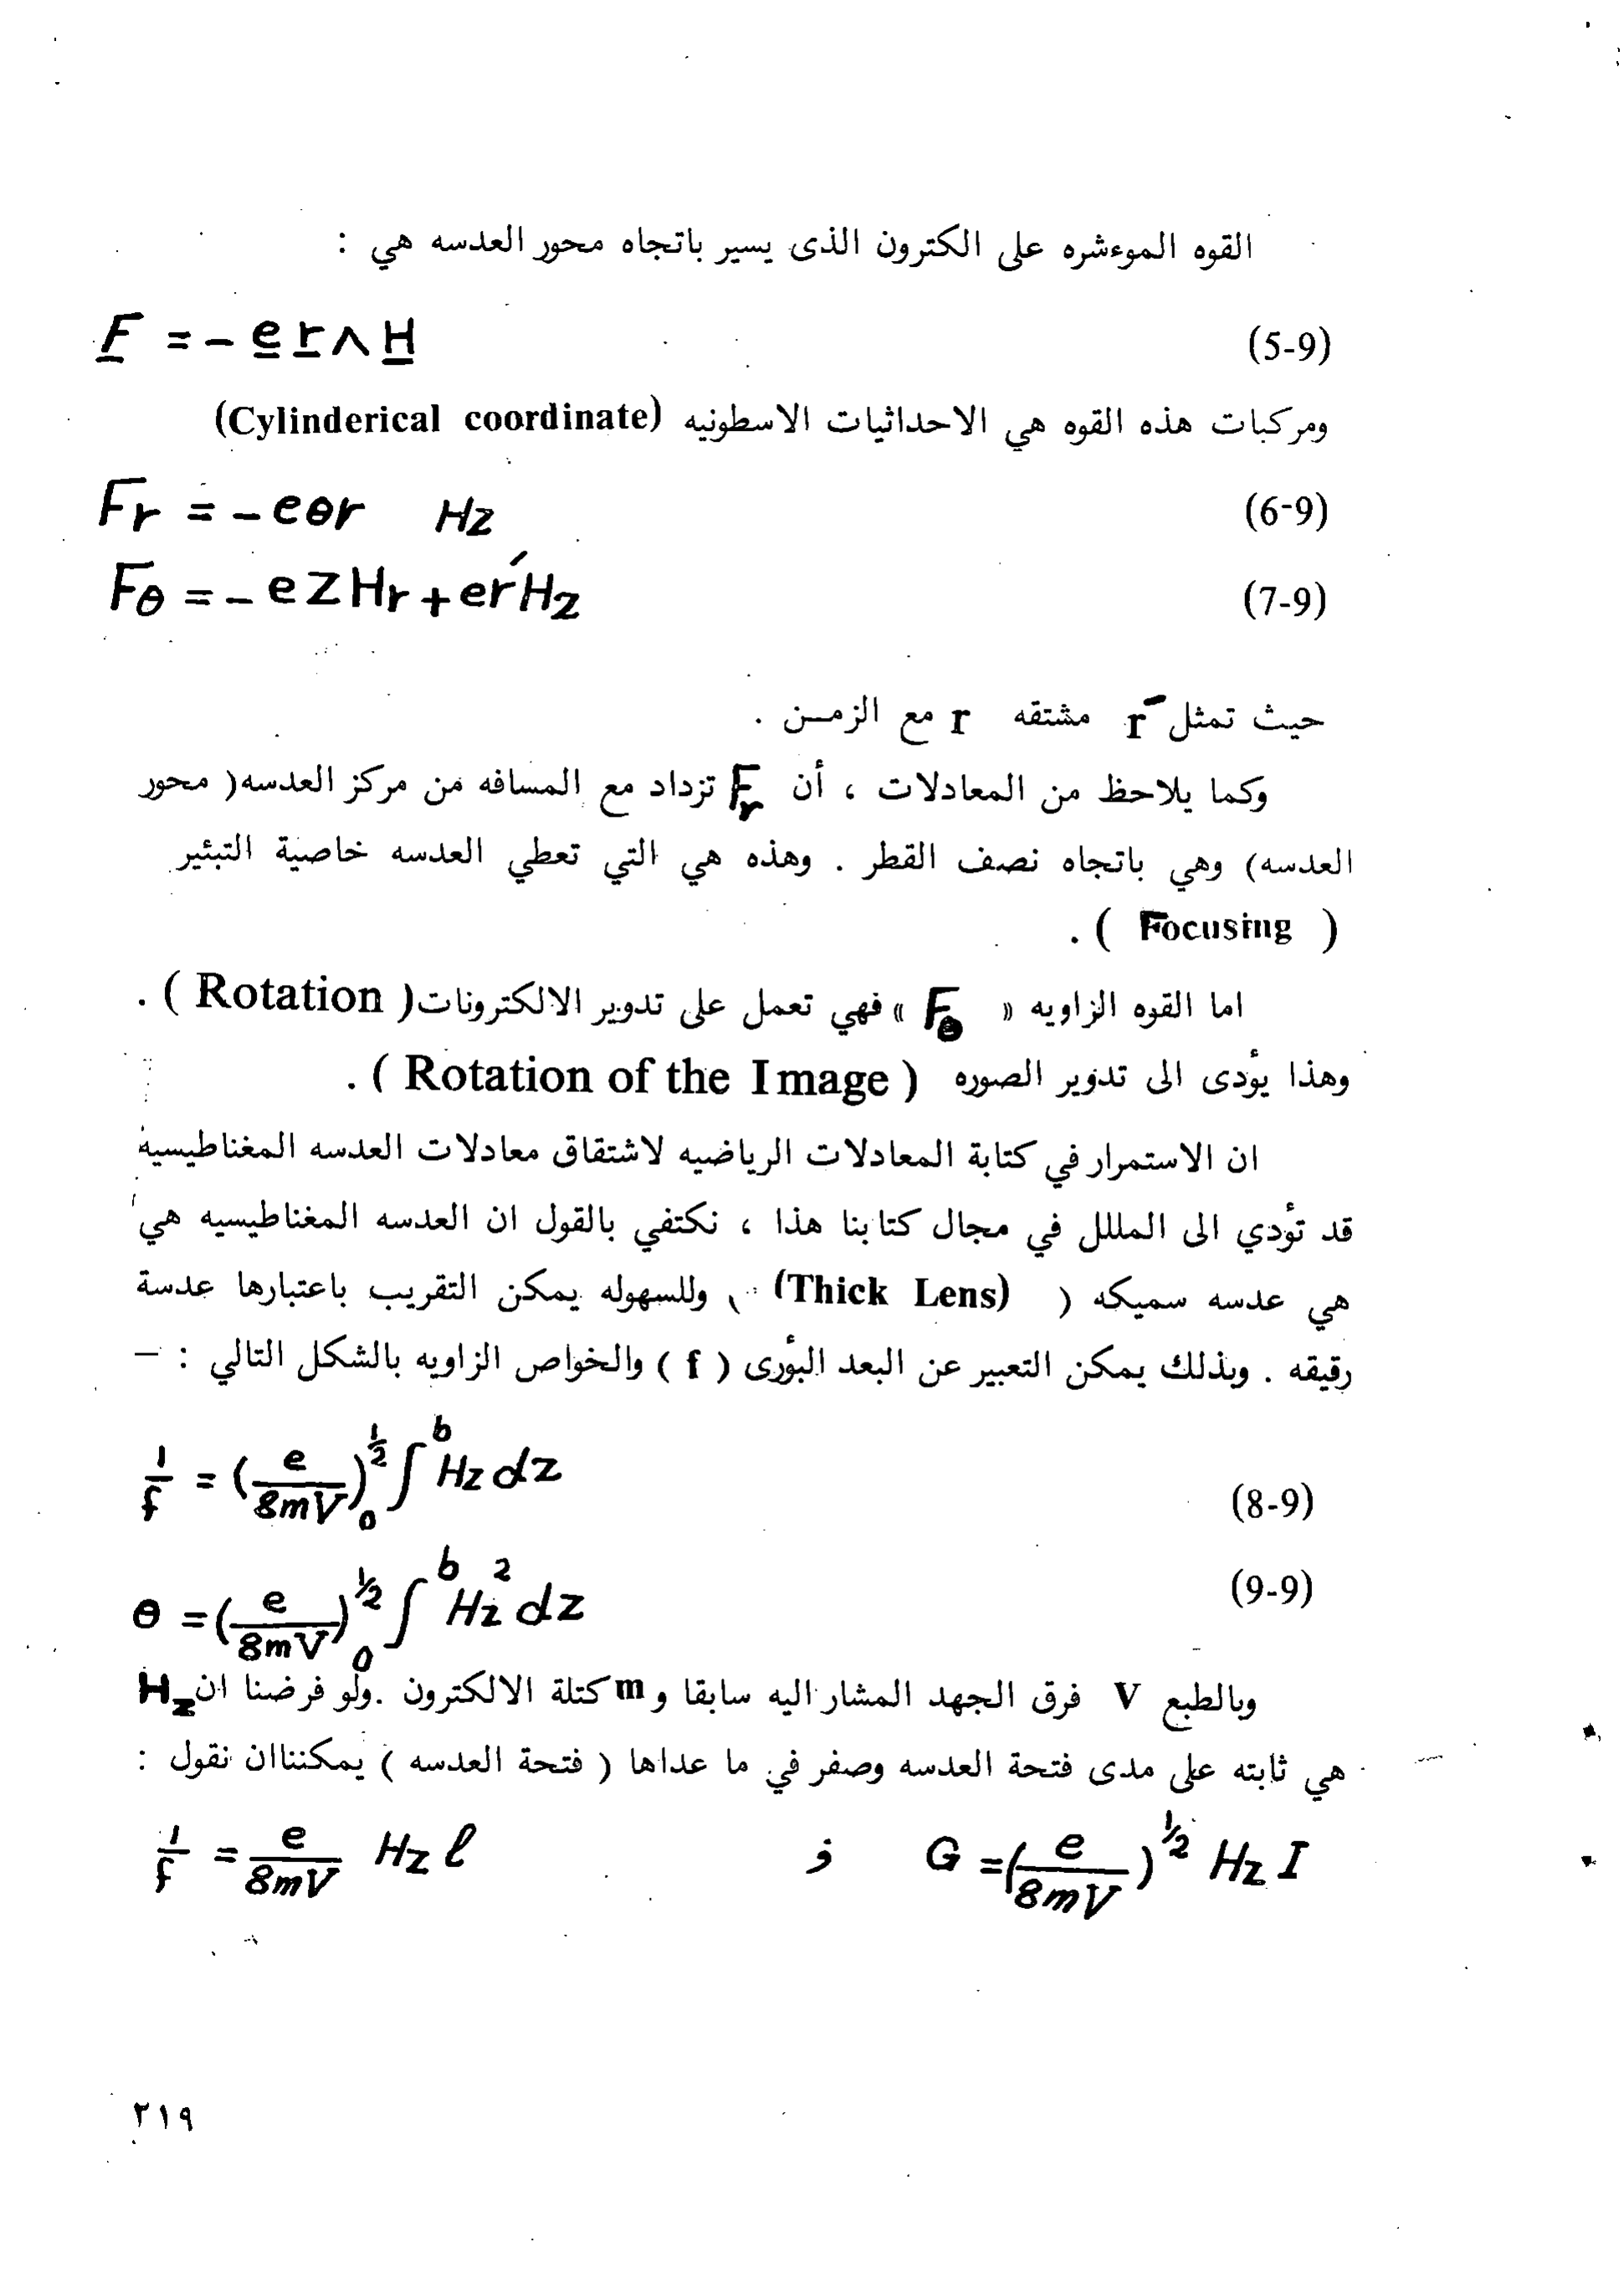 القوه الموءشره على الكترون الذى يسير باتجاه محور العدسه هي :
F = - e r ∧ H (5-9)
ومركبات هذه القوه هي الاحداثيات الاسطونيه (Cylinderical coordinate)
Fr = - eθr Hz (6-9)
Fθ = - e z Hr + er′Hz (7-9)
حيث تمثل r¯ مشتقه r مع الزمـن .
وكما يلاحظ من المعادلات ، أن Fr تزداد مع المسافه من مركز العدسه( محور
العدسه) وهي باتجاه نصف القطر . وهذه هي التي تعطي العدسه خاصية التبئير
( Focusing ) .
اما القوه الزاويه « Fθ » فهي تعمل على تدوير الالكترونات( Rotation ) .
وهذا يؤدى الى تدوير الصوره ( Rotation of the Image ) .
ان الاستمرار في كتابة المعادلات الرياضيه لاشتقاق معادلات العدسه المغناطيسيه
قد تؤدي الى المللل في مجال كتابنا هذا ، نكتفي بالقول ان العدسه المغناطيسيه هي
هي عدسه سميكه ( Thick Lens) ، وللسهوله يمكن التقريب باعتبارها عدسة
رقيقه . وبذلك يمكن التعبير عن البعد البؤرى ( f ) والخواص الزاويه بالشكل التالي : –
1/f = (e/8mV)^½ ₀∫^b Hz dz (8-9)
θ = (e/8mV)^½ ₀∫^b Hz² dz (9-9)
وبالطبع V فرق الجهد المشار اليه سابقا و m كتلة الالكترون .ولو فرضنا ان Hz
هي ثابته على مدى فتحة العدسه وصفر في ما عداها ( فتحة العدسه ) يمكنناان نقول :
1/f = e/8mV Hz ℓ و G = (e/8mV)^½ Hz I
٢١٩